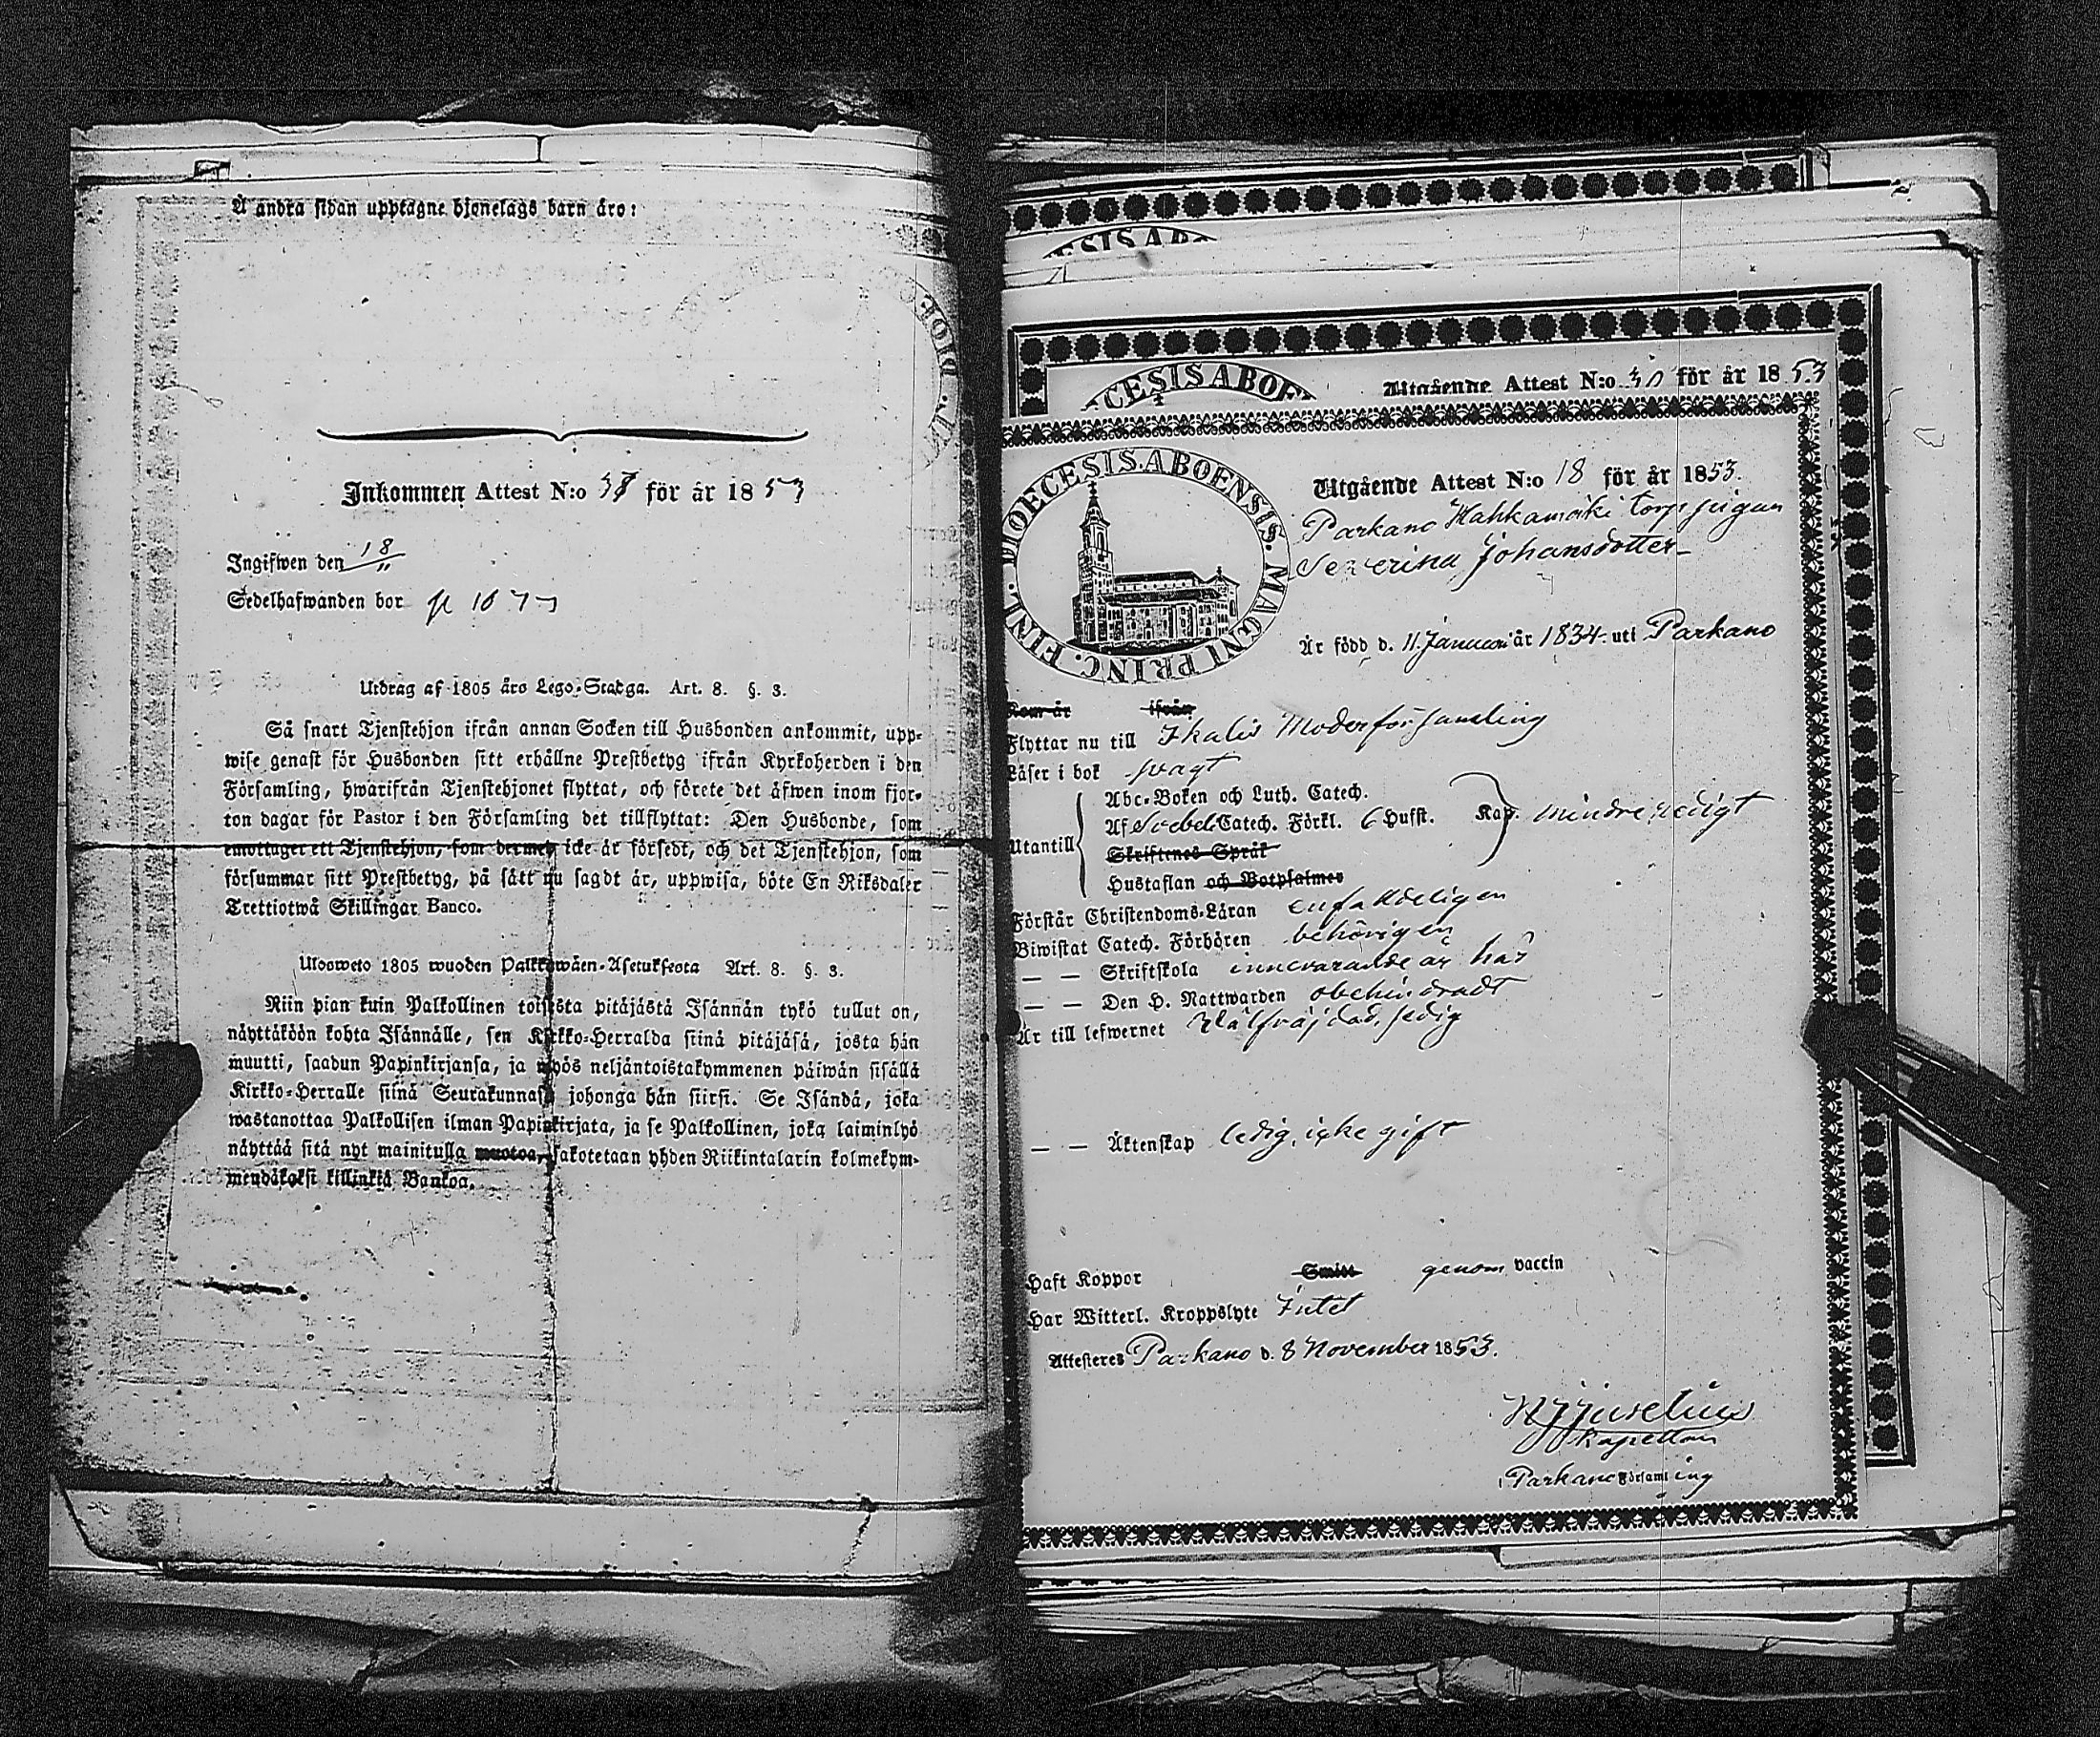 Å andra sidan upptagne hjonelags barn äro:
Inkommen Attest N:o för år 1853
Ingifwen den 18/11
Sedelhafwanden bor
Utdrag af 1805 års Lego-Stadga. Art. 8. §. 3.
Så snart Tjenstehjon ifrån annan Socken till Husbonden ankommit, upp-
wise genast för Husbonden sitt erhållne Prestbetyg ifrån Kyrkoherden i den
Församling, hwarifrån Tjenstehjonet flyttat, och förete det äfwen inom fjor-
ton dagar för Pastor i den Församling det tillflyttat: Den Husbonde, som
emottager ett Tjenstehjon, som dermed icke är försedt, och det Tjenstehjon, som
försummar sitt Prestbetyg, på sätt nu sagdt är, uppwisa, böte En Riksdaler
Trettiotwå Skillingar Banco.
Ulosweto 1805 wuoden Palkkawäen-Asetuksesta Art. 8. §. 3.
Niin pian kuin Palkollinen toisesta pitäjästä Isännän tykö tullut on,
näyttäköön kohta Isännälle, sen Kirkko-Herralda siinä pitäjäsä, josta hän
muutti, saadun Papinkirjansa, ja myös neljäntoistakymmenen päiwän sisällä
Kirkko-Herralle siinä Seurakunnasa johonga hän siirsi. Se Isändä, joka
wastanottaa Palkollisen ilman Papinkirjata, ja se Palkollinen, joka laiminlyö
näyttää sitä nyt mainitulla muotoa, sakotetaan yhden Riikintalarin kolmekym-
mendäkaksi killinkiä Bankoa.
ESIS AB
CESIS ABOE
Utgående Attest N:o 30 för år 1853
DIOECESIS. ABOENSIS. MAGNI PRINC. FINL.
Utgående Attest N:o 18 för år 1853.
Parkano Hahkamäki torp pigan
Severina Johansdotter
Är född d. 11 Januari år 1834 uti Parkano
Kom år ifrån
Flyttar nu till Ikalis Moderförsamling
Läser i bok svagt
Utantill
Abc-Boken och Luth. Catech.
Af Svebel. Catech. Förkl. 6 Hufst. Kap. mindre redigt
Skriftenes Språk
Hustaflan och Botpsalmer
Förstår Christendoms-Läran enfaldeligen
Biwistat Catech. Förhören behörigen
— — Skriftskola innevarande år här
— — Den H. Nattwarden obehindradt
Är till lefwernet välfräjdad, sedig
— — Äktenskap ledig, icke gift
Haft Koppor Smitt genom vaccin
Har Witterl. Kroppslyte Intet
Attesteres Parkano d. 8 November 1853.
Juselius
Kapellan
i Parkano Församling